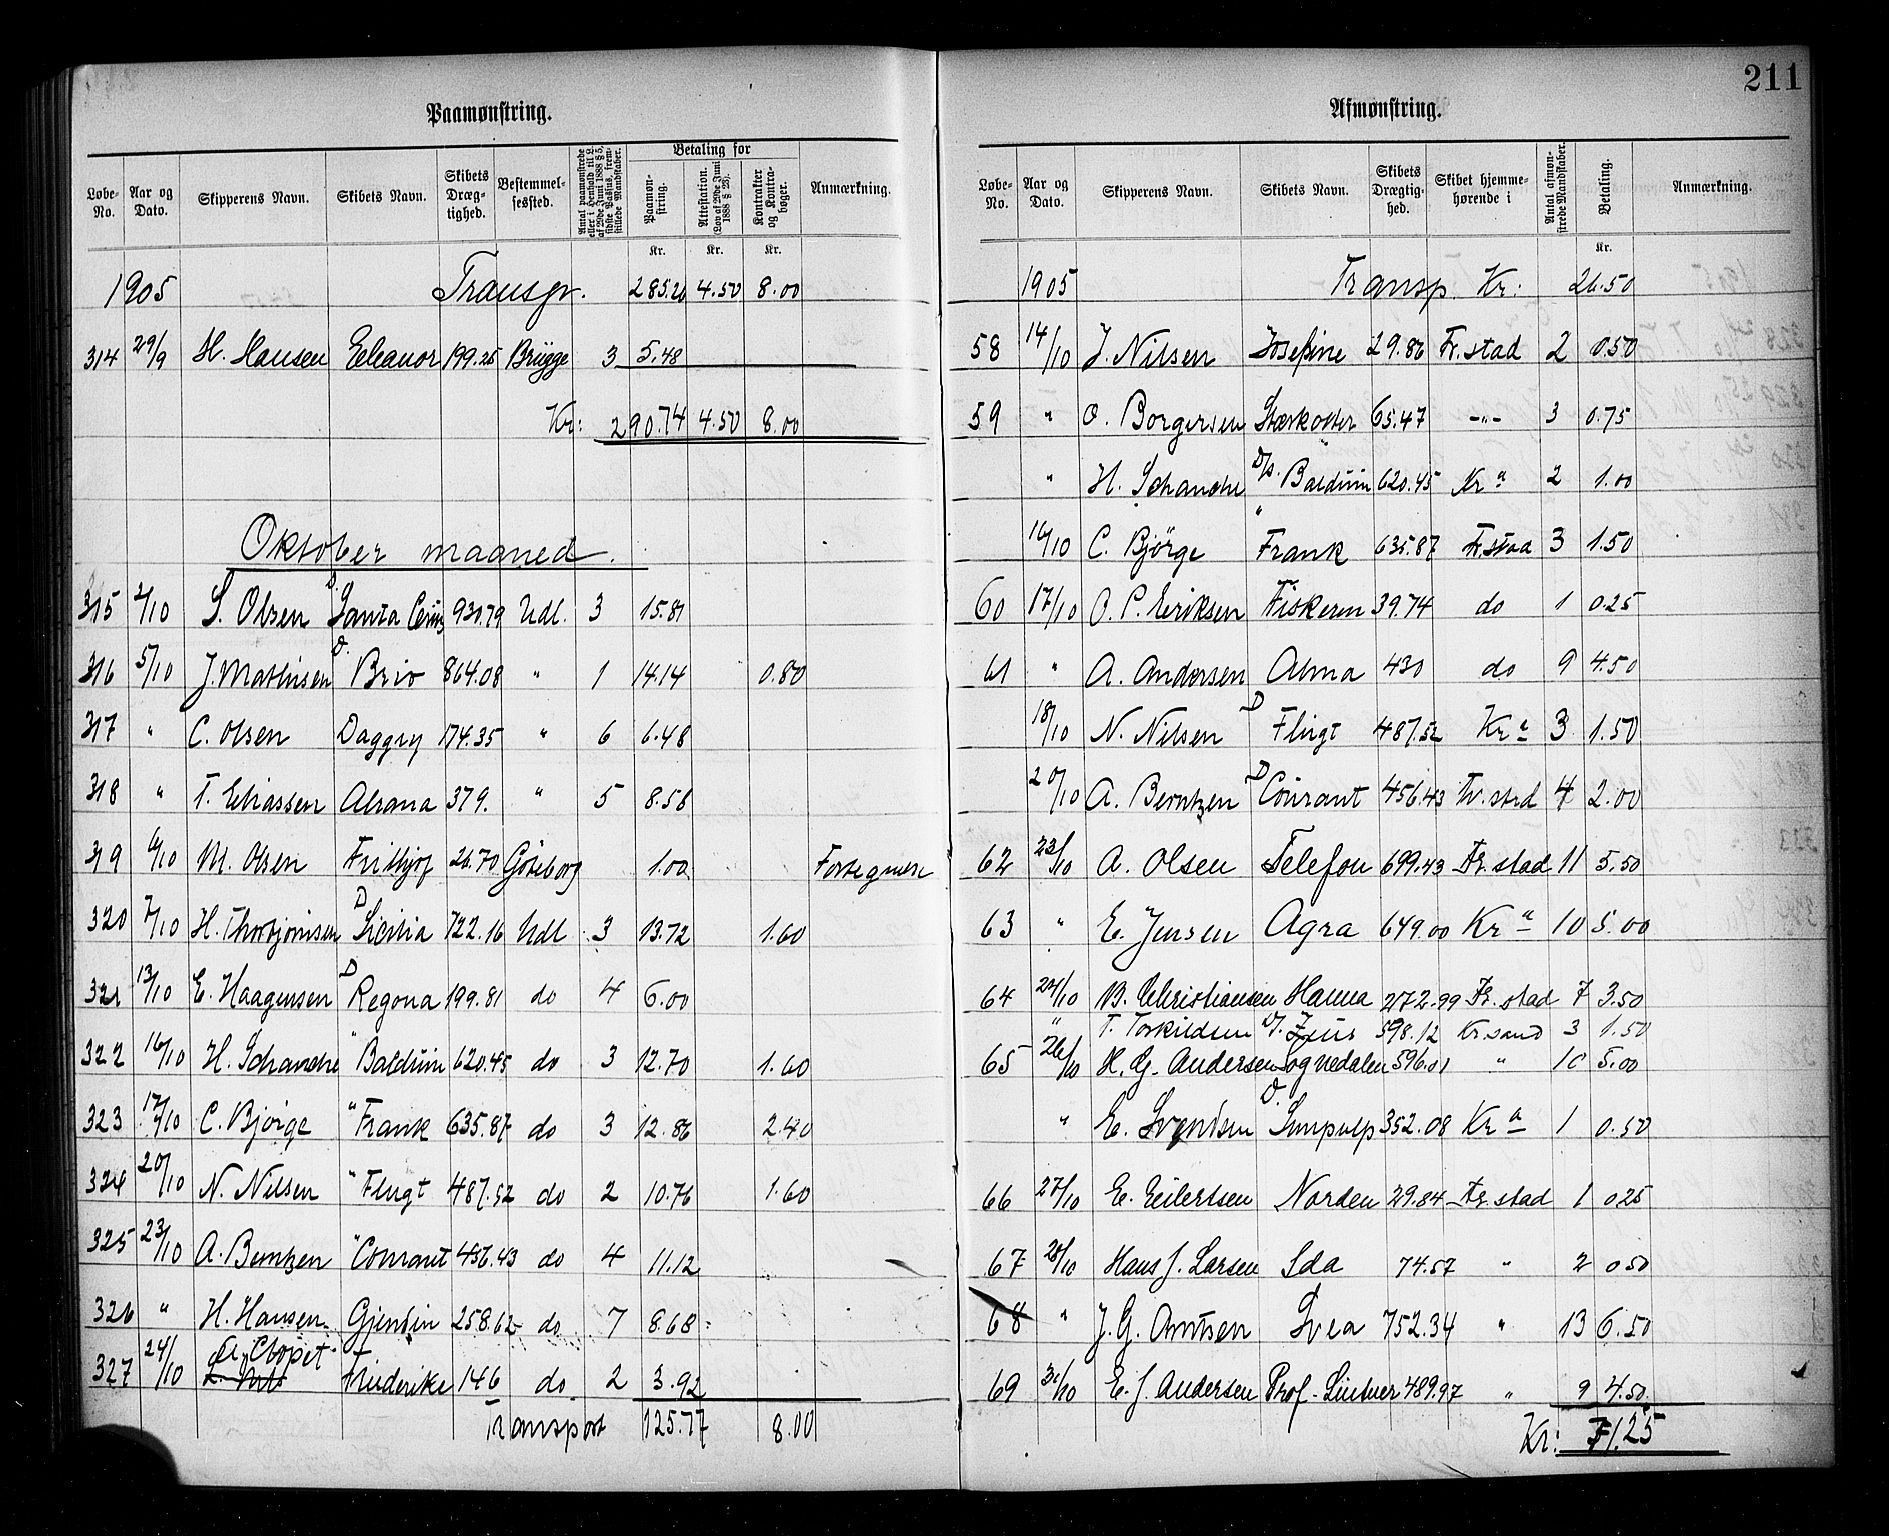 211
Paamønstring.
Løbe-No. | Aar og Dato. | Skipperens Navn. | Skibets Navn. | Skibets Dræg-tighed. | Bestemmel-sessted. | Antal paamønstrede eller i Henhold til L. af 29de Juni 1888 § 5, sidste Passus, frem-stillede Mandskaber. | Betaling for | Paamøn-string. Kr. | Attestation. (Lov af 29de Juni 1888 § 23). Kr. | Kontrakter og Kontra-bøger. Kr. | Anmærkning.
1905 Transpr. 285.26 4.50 8.00
314 29/9 H. Hansen Eleanor 199.25 Brügge 3 5.48
Kr: 290.74 4.50 8.00
Oktober maaned.
315 2/10 S. Olsen D. Santa Cruz 930.79 Udl. 3 15.81
316 5/10 J. Mathisen D. Brio 864.08 " 1 14.14 0.80
317 " C. Olsen Daggry 174.35 " 6 6.48
318 " T. Eliassen Alrana 379. " 5 8.58
319 6/10 M. Olsen Frithjof 26.70 Göteborg 1.00
320 7/10 H. Thorbjørnsen D Sicilia 722.16 Udl 3 13.72 1.60
321 13/10 E. Haagensen D Regona 199.81 do 4 6.00
322 16/10 H. Schanche " Balduin 620.45 do 3 12.70 1.60
323 17/10 C. Bjørge " Frank 635.87 do 3 12.86 2.40
324 20/10 N. Nilsen " Flugt 487.52 do 2 10.76 1.60
325 23/10 A. Berntzen " Courant 456.43 do 4 11.12
326 " H. Hansen Gjendin 258.62 do 7 8.68
327 24/10 Friderike 146 do 2 3.92
Transport 125.77 8.00
Afmønstring.
Løbe-No. | Aar og Dato. | Skipperens Navn. | Skibets Navn. | Skibets Drægtig-hed. | Skibet hjemme-hørende i | Antal afmøn-strede Mandskaber. | Betaling. Kr. | Anmærkning.
1905 Transp. Kr: 26.50
58 14/10 J. Nilsen Josefine 29.86 Fr.stad 2 0.50
59 " O. Borgersen Stærkodder 65.47 -"- 3 0.75
" H. Schanche D/s. Balduin 620.45 Kr a 2 1.00
16/10 C. Bjørge " Frank 635.87 Fr.stad 3 1.50
60 17/10 O. P. Eriksen Fiskeren 39.74 do 1 0.25
61 " A. Andersen Alma 430 do 9 4.50
18/10 N. Nilsen D Flugt 487.52 Kr a 3 1.50
20/10 A. Berntzen D Courant 456.43 Fr.stad 4 2.00
62 23/10 A. Olsen Telefon 699.43 Fr.stad 11 5.50
63 " E. Jensen Agra 649.00 Kr a 10 5.00
64 24/10 B. Christiansen Hanna 272.99 Fr.stad 7 3.50
" T. Torkildsen D/. Zeus 598.12 Kr.sand 3 1.50
65 26/10 H. G. Andersen Sognedalen 596.01 " 10 5.00
" E. Svendsen D. Sunpulp 352.08 Kr a 1 0.50
66 27/10 E. Eilertsen Norden 29.84 Fr.stad 1 0.25
67 28/10 Hans J. Larsen Ida 74.57 " 2 0.50
68 " J. G. Arntsen Svea 752.34 " 13 6.50
69 31/10 E. J. Andersen Prof. Lintner 489.97 " 9 4.50
Kr: 71.25